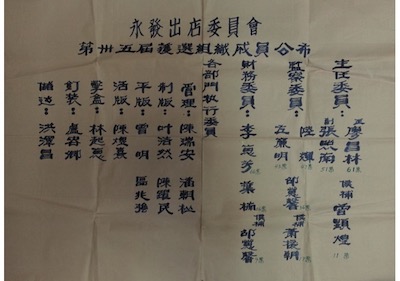 永發出店委員會
第卅五屆復選組織成員公布
主任委員：正 廖昌林 61票 候補 曾顯煌 11票
副 張熙南 51票
監察委員：陸輝 候補
左廉明 邱慧醫
財務委員：李惠芳 葉楠 候補 邱慧醫
各部門执行委員
管理：陳瑞安 潘朝松
制版：叶浩然 陳躍民
平版：雷明 區兆
活版：陳煥
盒：林起惠
釘裝：盧容卿
洪澤昌